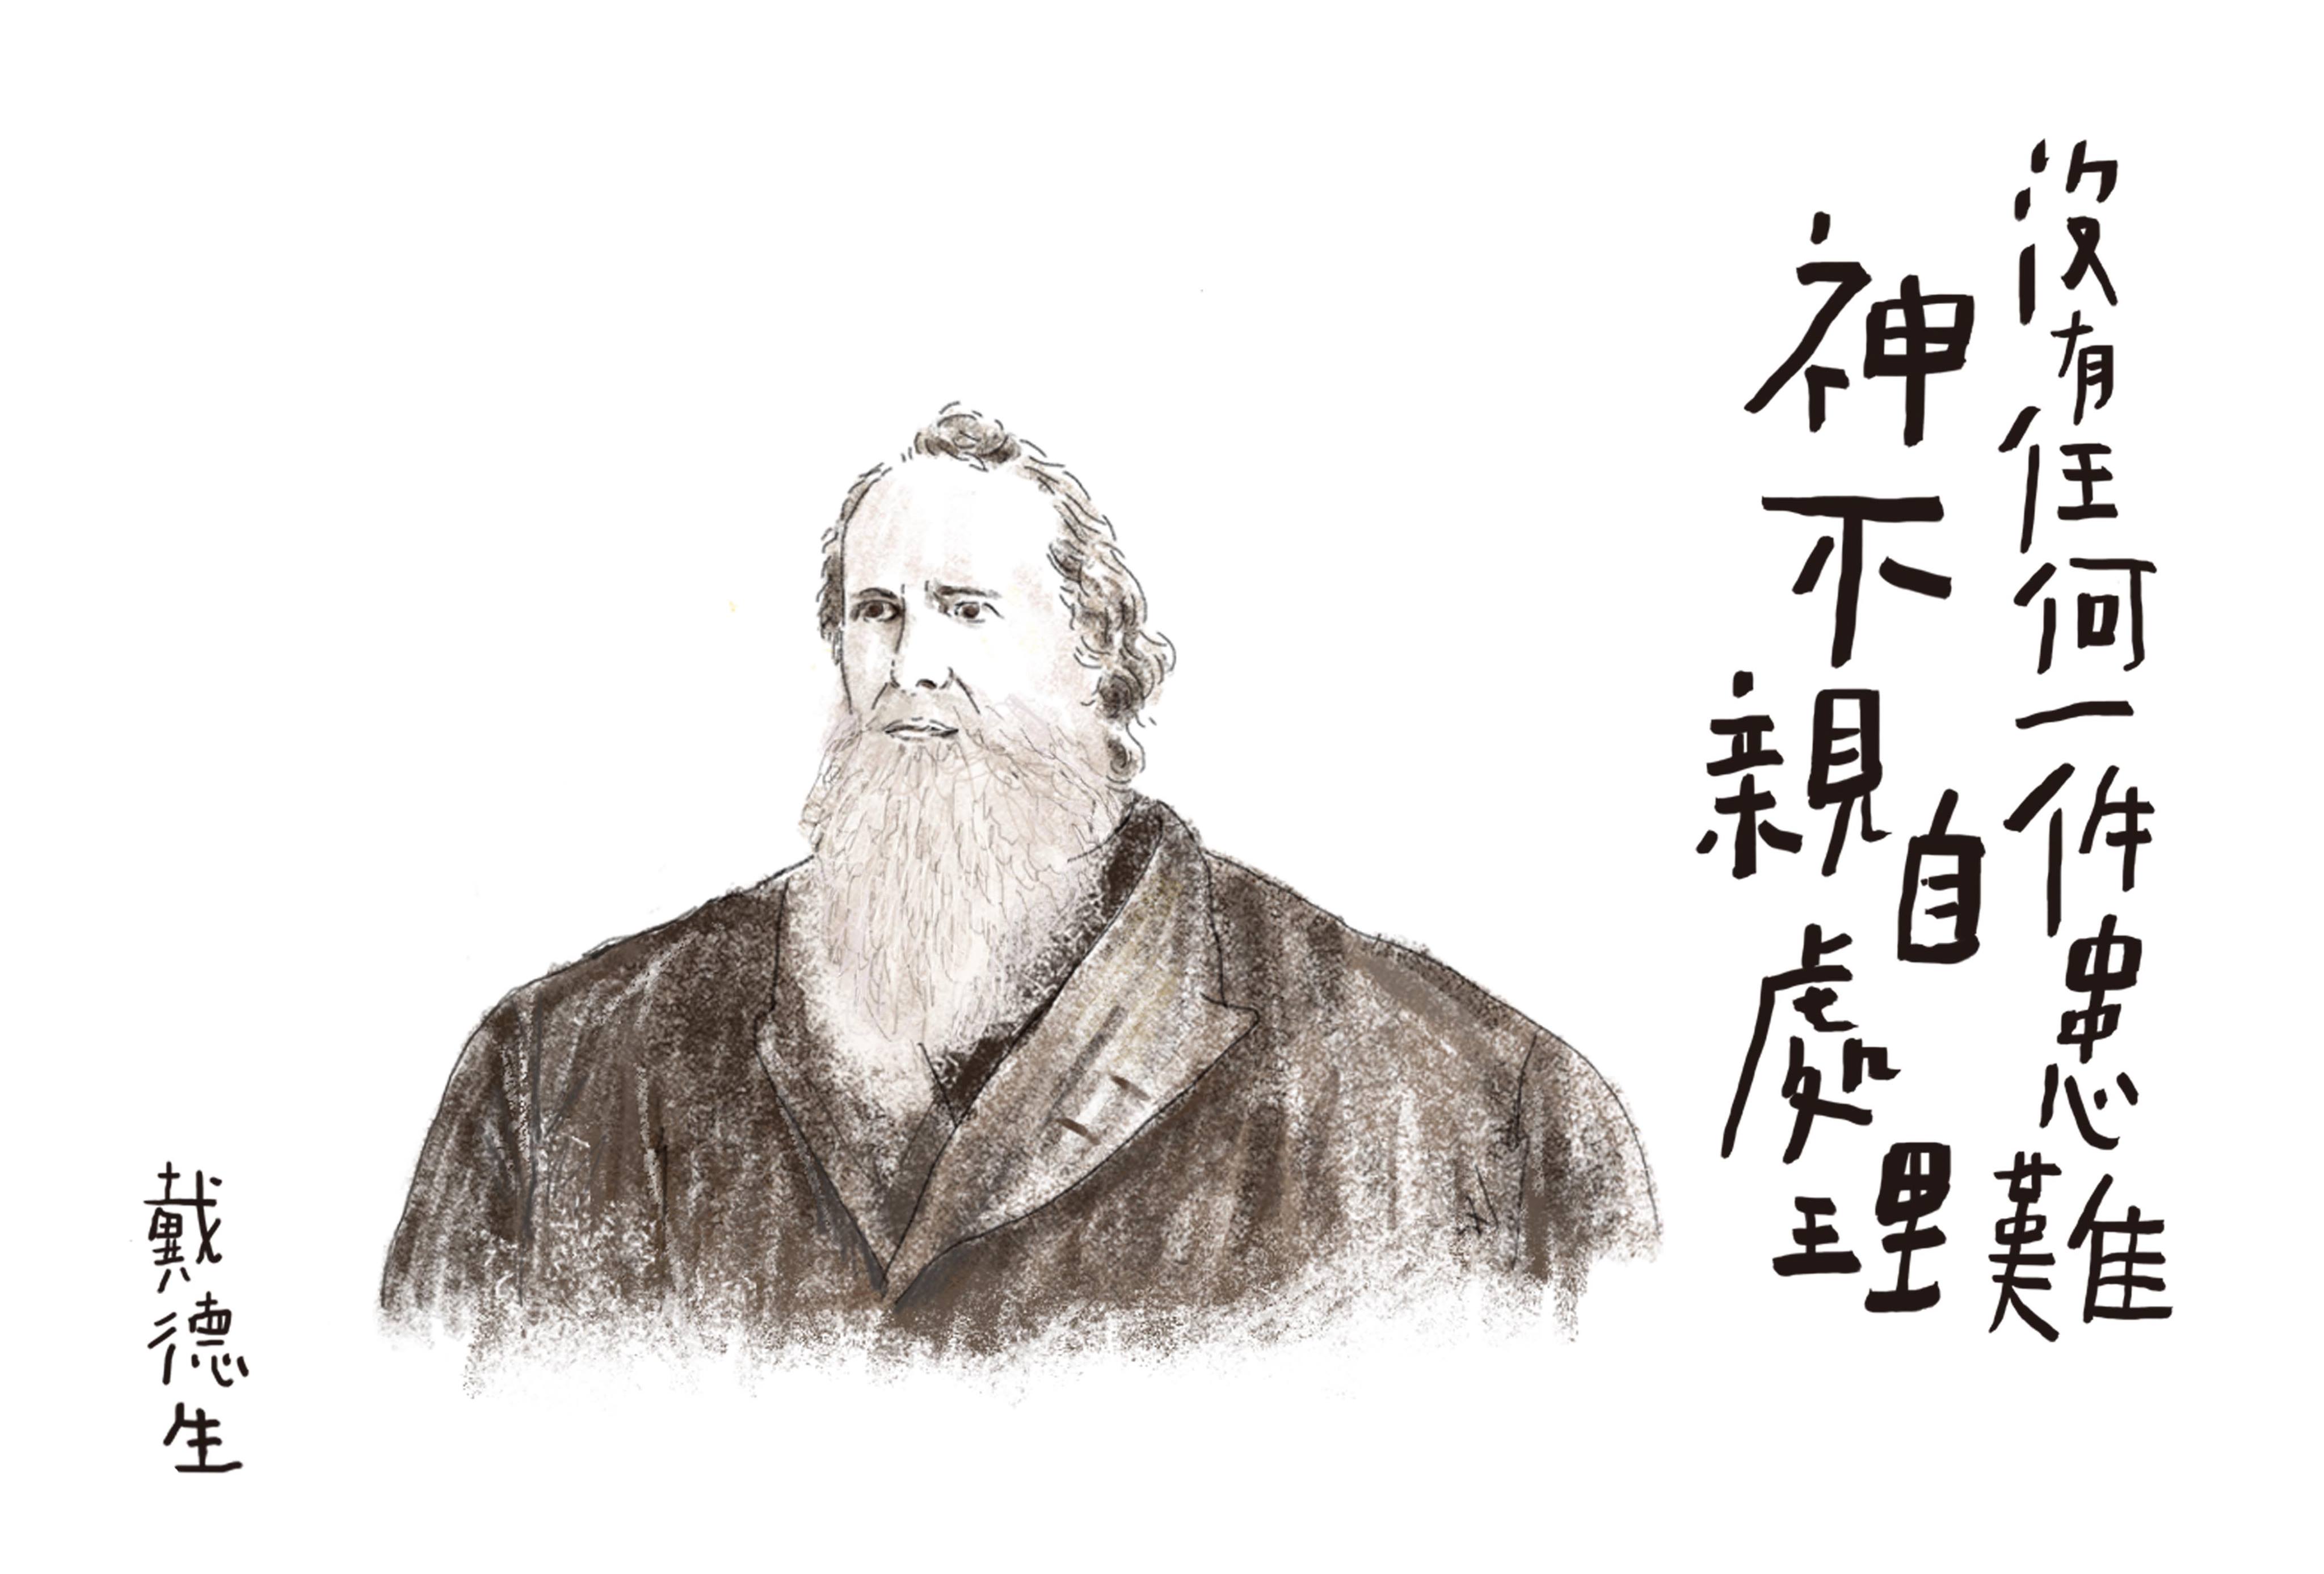 沒有任何一件患難
神不親自處理
戴德生